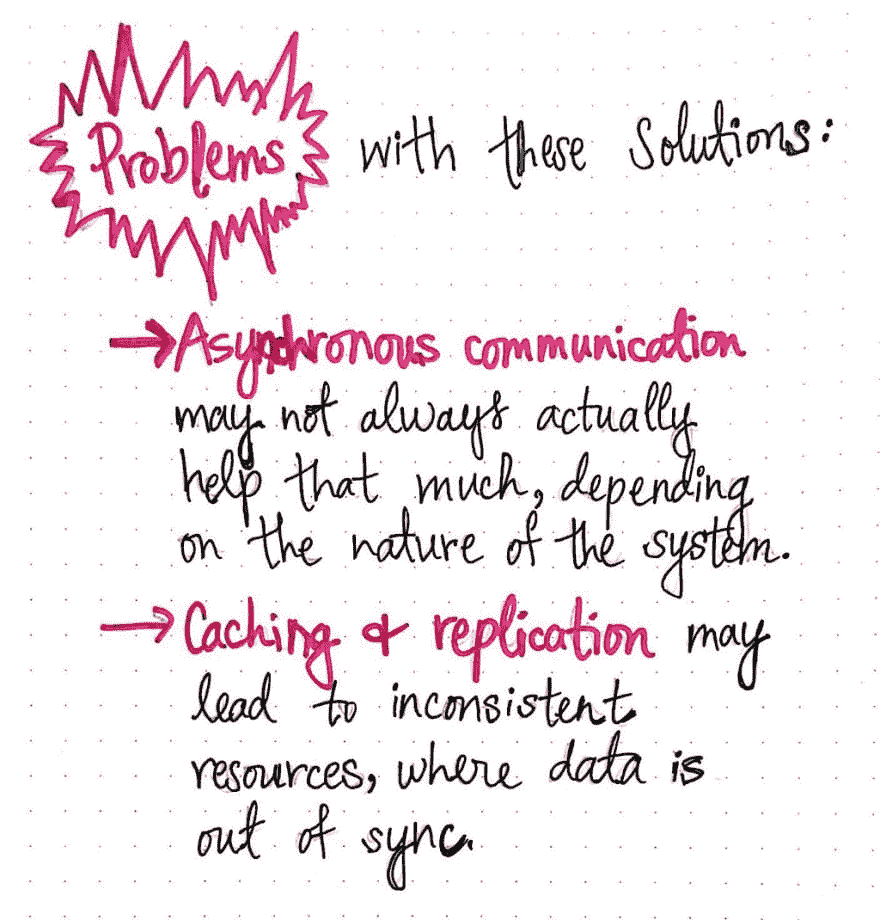 Problems with these Solutions:
→ Asynchronous communication
may not always actually
help that much, depending
on the nature of the system.
→ Caching & replication may
lead to inconsistent
resources, where data is
out of sync.